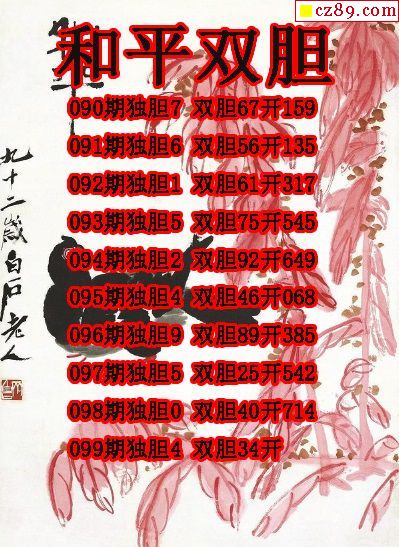 cz89.com
和平双胆
090期独胆7 双胆67开159
091期独胆6 双胆56开135
092期独胆1 双胆61开317
093期独胆5 双胆75开545
094期独胆2 双胆92开649
095期独胆4 双胆46开068
096期独胆9 双胆89开385
097期独胆5 双胆25开542
098期独胆0 双胆40开714
099期独胆4 双胆34开
九十二岁白石老人